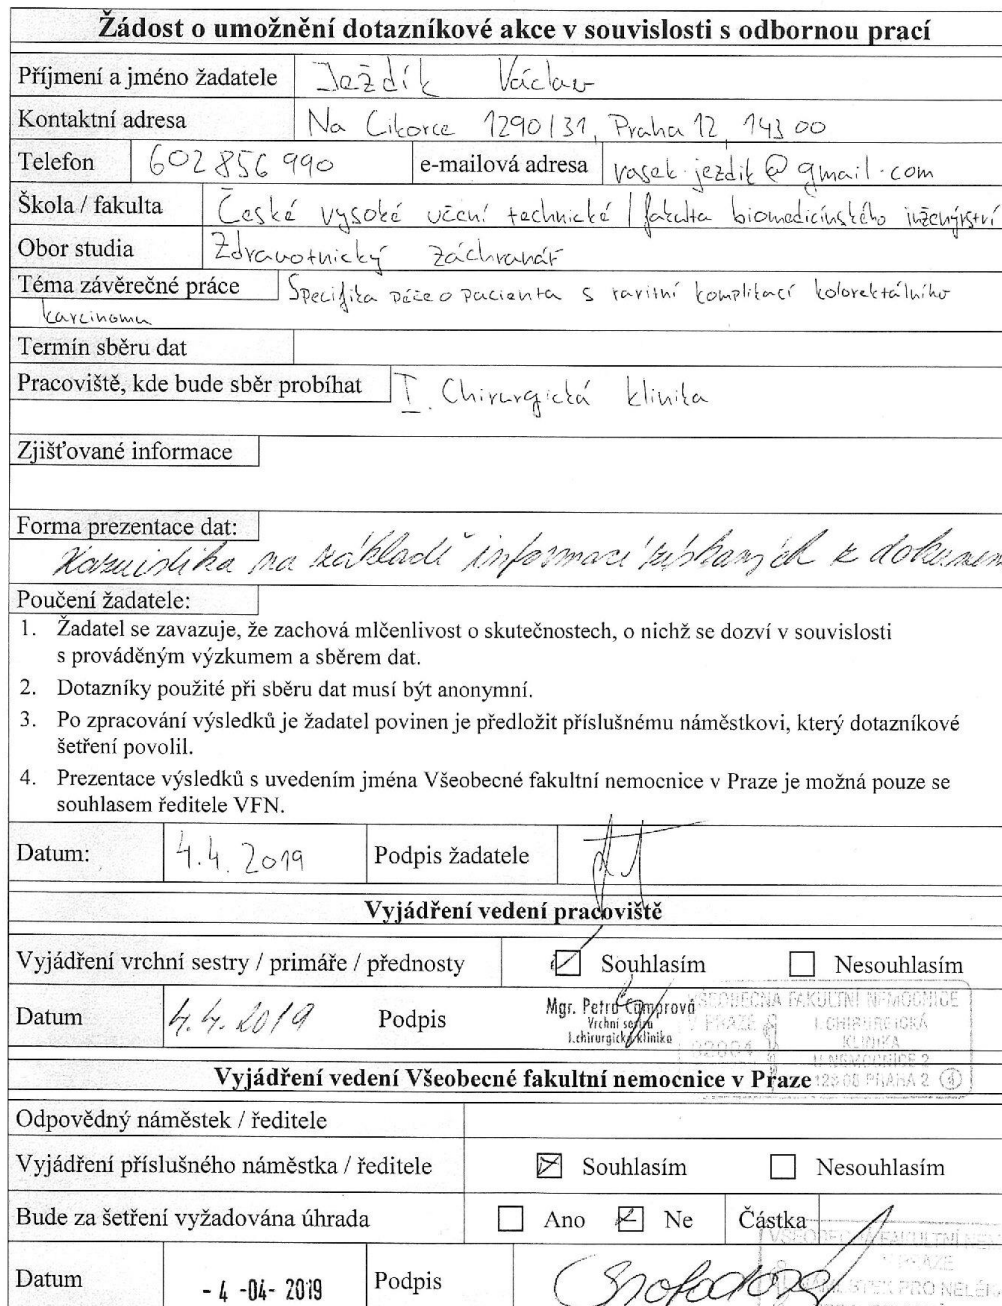 Žádost o umožnění dotazníkové akce v souvislosti s odbornou prací
Příjmení a jméno žadatele Ježdík Václav
Kontaktní adresa Na Cikorce 1290/31, Praha 12, 143 00
Telefon 602 856 990 e-mailová adresa vasek.jezdik@gmail.com
Škola / fakulta České vysoké učení technické / fakulta biomedicínského inženýrství
Obor studia Zdravotnický záchranář
Téma závěrečné práce Specifika péče o pacienta s raritní komplikací kolorektálního
karcinomu
Termín sběru dat
Pracoviště, kde bude sběr probíhat I. Chirurgická klinika
Zjišťované informace
Forma prezentace dat:
Kazuistika na základě informací získaných z dokumen
Poučení žadatele:
1. Žadatel se zavazuje, že zachová mlčenlivost o skutečnostech, o nichž se dozví v souvislosti
s prováděným výzkumem a sběrem dat.
2. Dotazníky použité při sběru dat musí být anonymní.
3. Po zpracování výsledků je žadatel povinen je předložit příslušnému náměstkovi, který dotazníkové
šetření povolil.
4. Prezentace výsledků s uvedením jména Všeobecné fakultní nemocnice v Praze je možná pouze se
souhlasem ředitele VFN.
Datum: 4.4.2019 Podpis žadatele
Vyjádření vedení pracoviště
Vyjádření vrchní sestry / primáře / přednosty Souhlasím Nesouhlasím
Datum 4.4.2019 Podpis
Mgr. Petra Camprová
Vrchní sestra
I.chirurgická klinika
VŠEOBECNÁ FAKULTNÍ NEMOCNICE
V PRAZE
I. CHIRURGICKÁ
KLINIKA
U NEMOCNICE 2
128 08 PRAHA 2 4
Vyjádření vedení Všeobecné fakultní nemocnice v Praze
Odpovědný náměstek / ředitele
Vyjádření příslušného náměstka / ředitele Souhlasím Nesouhlasím
Bude za šetření vyžadována úhrada Ano Ne Částka
VŠEOBECNÁ FAKULTNÍ NEM
V PRAZE
Datum -4 -04- 2019 Podpis
PRO NELÉK